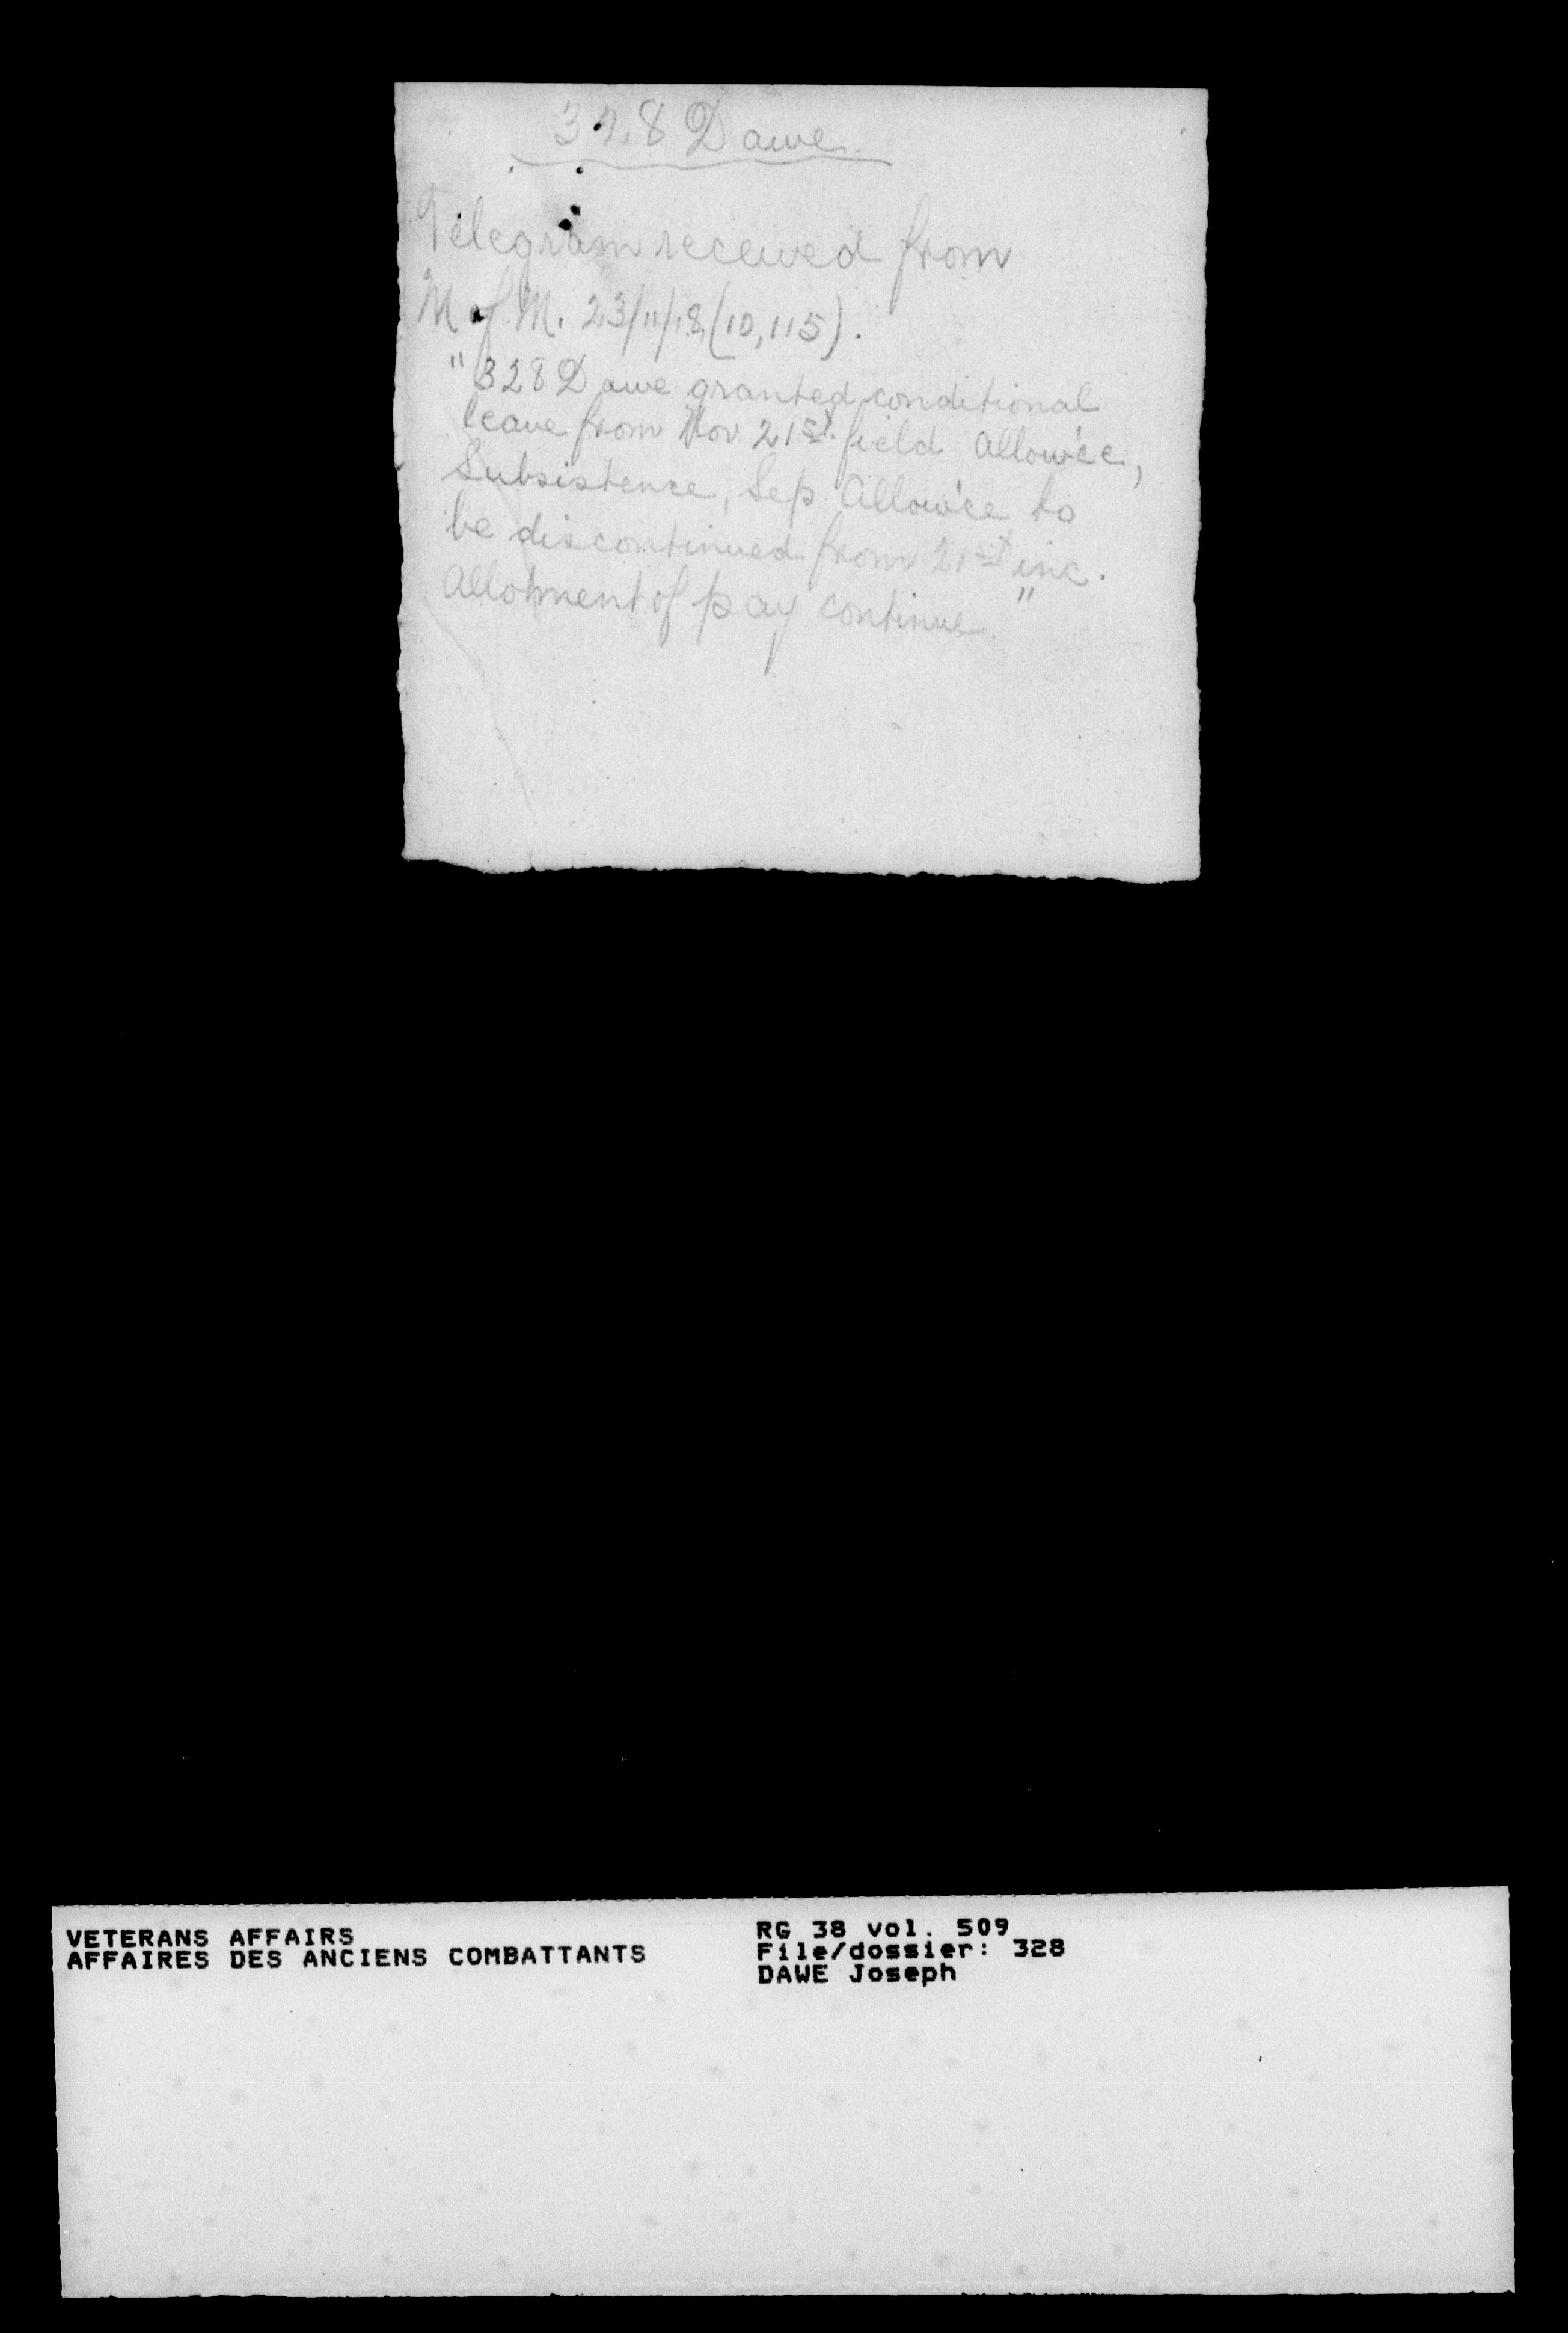 328 Dawe
Telegram received from
M of M. 23/11/18 (10,115).
"328 Dawe granted conditional
leave from Nov 21st. field Allow'ce,
Subsistence, Sep Allow'ce to
be discontinued from 21st inc.
Allotment of pay continue."
VETERANS AFFAIRS
AFFAIRES DES ANCIENS COMBATTANTS
RG 38 vol. 509
File/dossier: 328
DAWE Joseph